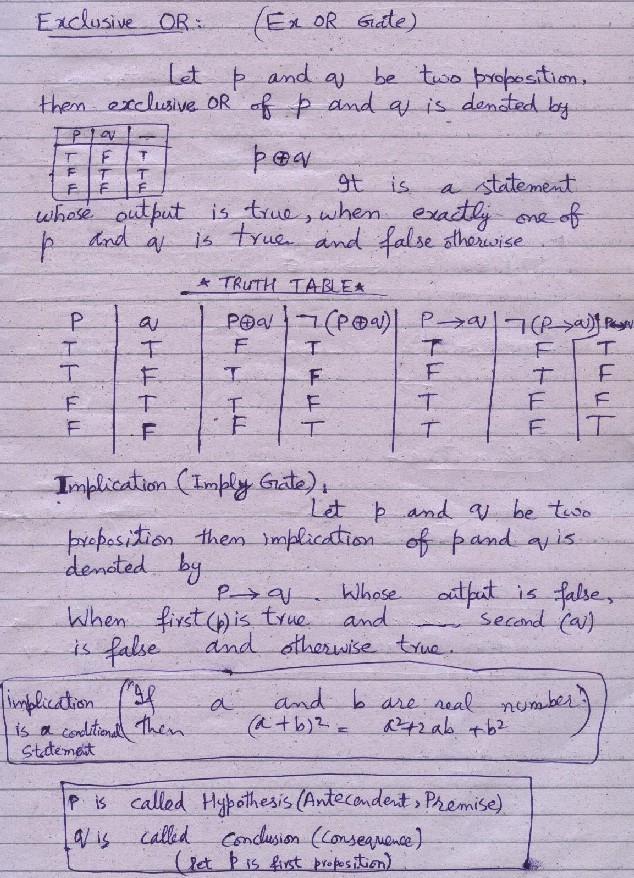 Exclusive OR: (Ex OR Gate)
Let p and q be two proposition,
then exclusive OR of p and q is denoted by
P q —
T F T
F T T
F F F
p⊕q
It is a statement
whose output is true, when exactly one of
p and q is true and false otherwise.
* TRUTH TABLE *
P q P⊕q ¬(P⊕q) P→q ¬(P→q)
T T F T T F T
T F T F F T F
F T T F T F F
F F F T T F T
Implication (Imply Gate):
Let p and q be two
proposition then implication of p and q is
denoted by
P→q. Whose output is false,
When first (p) is true and — second (q)
is false and otherwise true.
implication ("If a and b are real number)
is a conditional then (a+b)2 = a2+2ab+b2
Statement
P is called Hypothesis (Antecendent, Premise)
q is called Conclusion (Consequence)
(let P is first proposition)